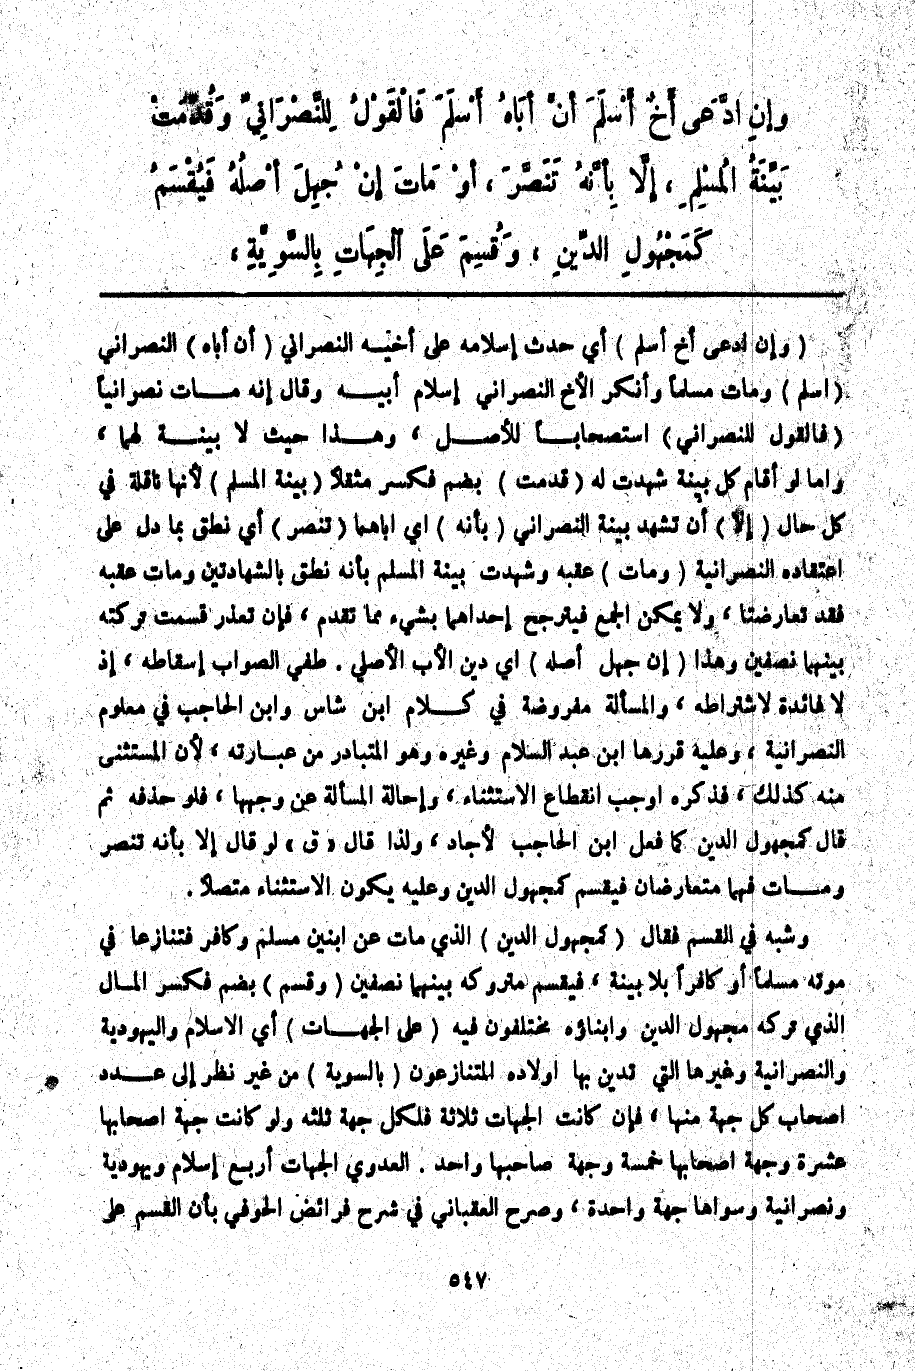 وَإِنِ ادَّعَى أَخٌ أَسْلَمَ أَنَّ أَبَاهُ أَسْلَمَ فَالْقَوْلُ لِلنَّصْرَانِيِّ وَقُدِّمَتْ
بَيِّنَةُ الْمُسْلِمِ ، إِلَّا بِأَنَّهُ تَنَصَّرَ ، أَوْ مَاتَ إِنْ جُهِلَ أَصْلُهُ فَيُقْسَمُ
كَمَجْهُولِ الدِّينِ ، وَقُسِمَ عَلَى الْجِهَاتِ بِالسَّوِيَّةِ ،
( وإن ادعى أخ أسلم ) أي حدث إسلامه على أخيه النصراني ( أن أباه ) النصراني
( اسلم ) ومات مسلماً وأنكر الأخ النصراني إسلام أبيه وقال إنه مات نصرانياً
( فالقول للنصراني ) استصحاباً للأصل ، وهذا حيث لا بينة لهما ،
واما لو أقام كل بينة شهدت له ( قدمت ) بضم فكسر مثقلا ( بينة المسلم ) لأنها ناقلة في
كل حال ( إلا ) أن تشهد بينة النصراني ( بأنه ) اي اباهما ( تنصر ) أي نطق بما دل على
اعتقاده النصرانية ( ومات ) عقبه وشهدت بينة المسلم بأنه نطق بالشهادتين ومات عقبه
فقد تعارضتا ، ولا يمكن الجمع فيترجح إحداهما بشيء مما تقدم ، فإن تعذر قسمت تركته
بينهما نصفين وهذا ( إن جهل أصله ) اي دين الأب الأصلي . طفي الصواب إسقاطه ، إذ
لا فائدة لاشتراطه ، والمسألة مفروضة في كلام ابن شاس وابن الحاجب في معلوم
النصرانية ، وعليه قررها ابن عبد السلام وغيره وهو المتبادر من عبارته ، لأن المستثنى
منه كذلك ، فذكره اوجب انقطاع الاستثناء ، وإحالة المسألة عن وجهها ، فلو حذفه ثم
قال كمجهول الدين كما فعل ابن الحاجب لأجاد ، ولذا قال « ق » لو قال إلا بأنه تنصر
ومات فهما متعارضان فيقسم كمجهول الدين وعليه يكون الاستثناء متصلا .
وشبه في القسم فقال ( كمجهول الدين ) الذي مات عن ابنين مسلم وكافر فتنازعا في
موته مسلماً أو كافراً بلا بينة ، فيقسم متروكه بينهما نصفين ( وقسم ) بضم فكسر المال
الذي تركه مجهول الدين وابناؤه مختلفون فيه ( على الجهات ) أي الاسلام واليهودية
والنصرانية وغيرها التي تدين بها اولاده المتنازعون ( بالسوية ) من غير نظر إلى عدد
اصحاب كل جهة منها ، فإن كانت الجهات ثلاثة فلكل جهة ثلثه ولو كانت جهة اصحابها
عشرة وجهة اصحابها خمسة وجهة صاحبها واحد . العدوي الجهات أربع إسلام ويهودية
ونصرانية وسواها جهة واحدة ، وصرح العقباني في شرح فرائض الحوفي بأن القسم على
٥٤٧